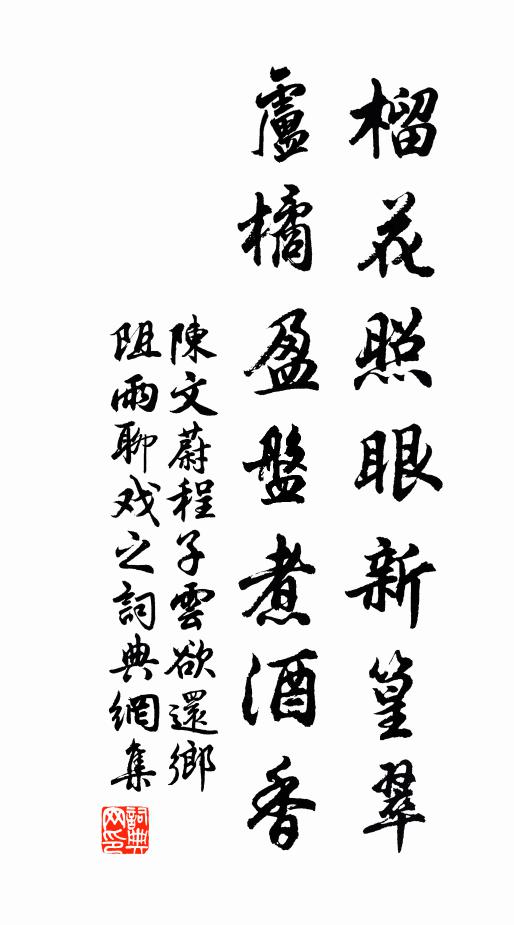 榴花照眼新篁翠
盧橘盈盤煮酒香
陳文蔚程子雲欲還鄉
阻雨聊戏之詞典網集
詞典网印